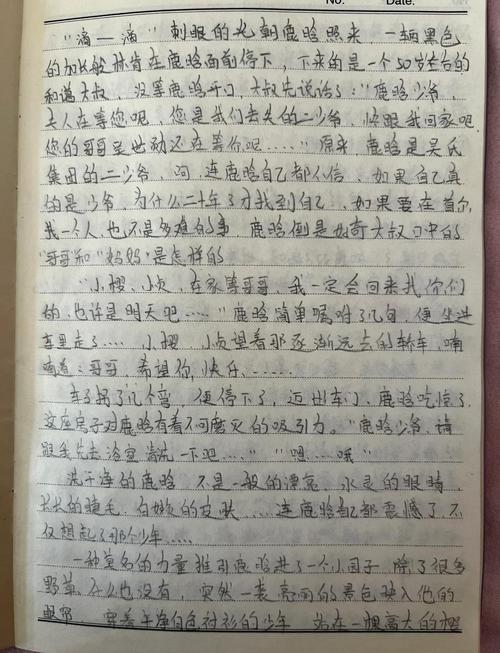 No. Date.
"滴—滴" 刺眼的光朝鹿晗照来,一辆黑色
的加长般林肯在鹿晗面前停下,下来的是一个50岁左右的
和蔼大叔,没等鹿晗开口,大叔先说话了:"鹿晗少爷,
夫人在等您呢,您是我们丢失的二少爷,快跟我回家吧,
您的哥哥吴世勋还在等你呢……" 原来,鹿晗是吴氏
集团的二少爷,呵,连鹿晗自己都不信,如果自己真
的是少爷,为什么二十年了才找到自己,如果要在首尔
找一个人,也不是多难的事,鹿晗倒是好奇大叔口中的
"哥哥和"妈妈"是怎样的
"小樱,小贞,在家等哥哥,我一定会回来找你们
的,也许是明天吧……" 鹿晗简单嘱咐了几句,便坐进
车里走了……小樱,小贞望着那逐渐远去的轿车,喃
喃道:哥哥,希望你,快乐……
车子拐了几个弯,便停下了,迈出车门,鹿晗吃惊了,
这座房子对鹿晗有着不可磨灭的吸引力。"鹿晗少爷,请
跟我先去浴室清洗一下吧……" "嗯……哦"
洗干净的鹿晗,不是一般的漂亮,水灵的眼睛,
长长的睫毛,白嫩的皮肤……连鹿晗自己都震憾了,不
仅想起了那个少年……
一种莫名的力量推引鹿晗进了一个小园子,除了很多
野草,什么也没有,突然一袭亮丽的景色映入他的
眼帘,穿着干净白色衬衫的少年,站在一棵高大的樱